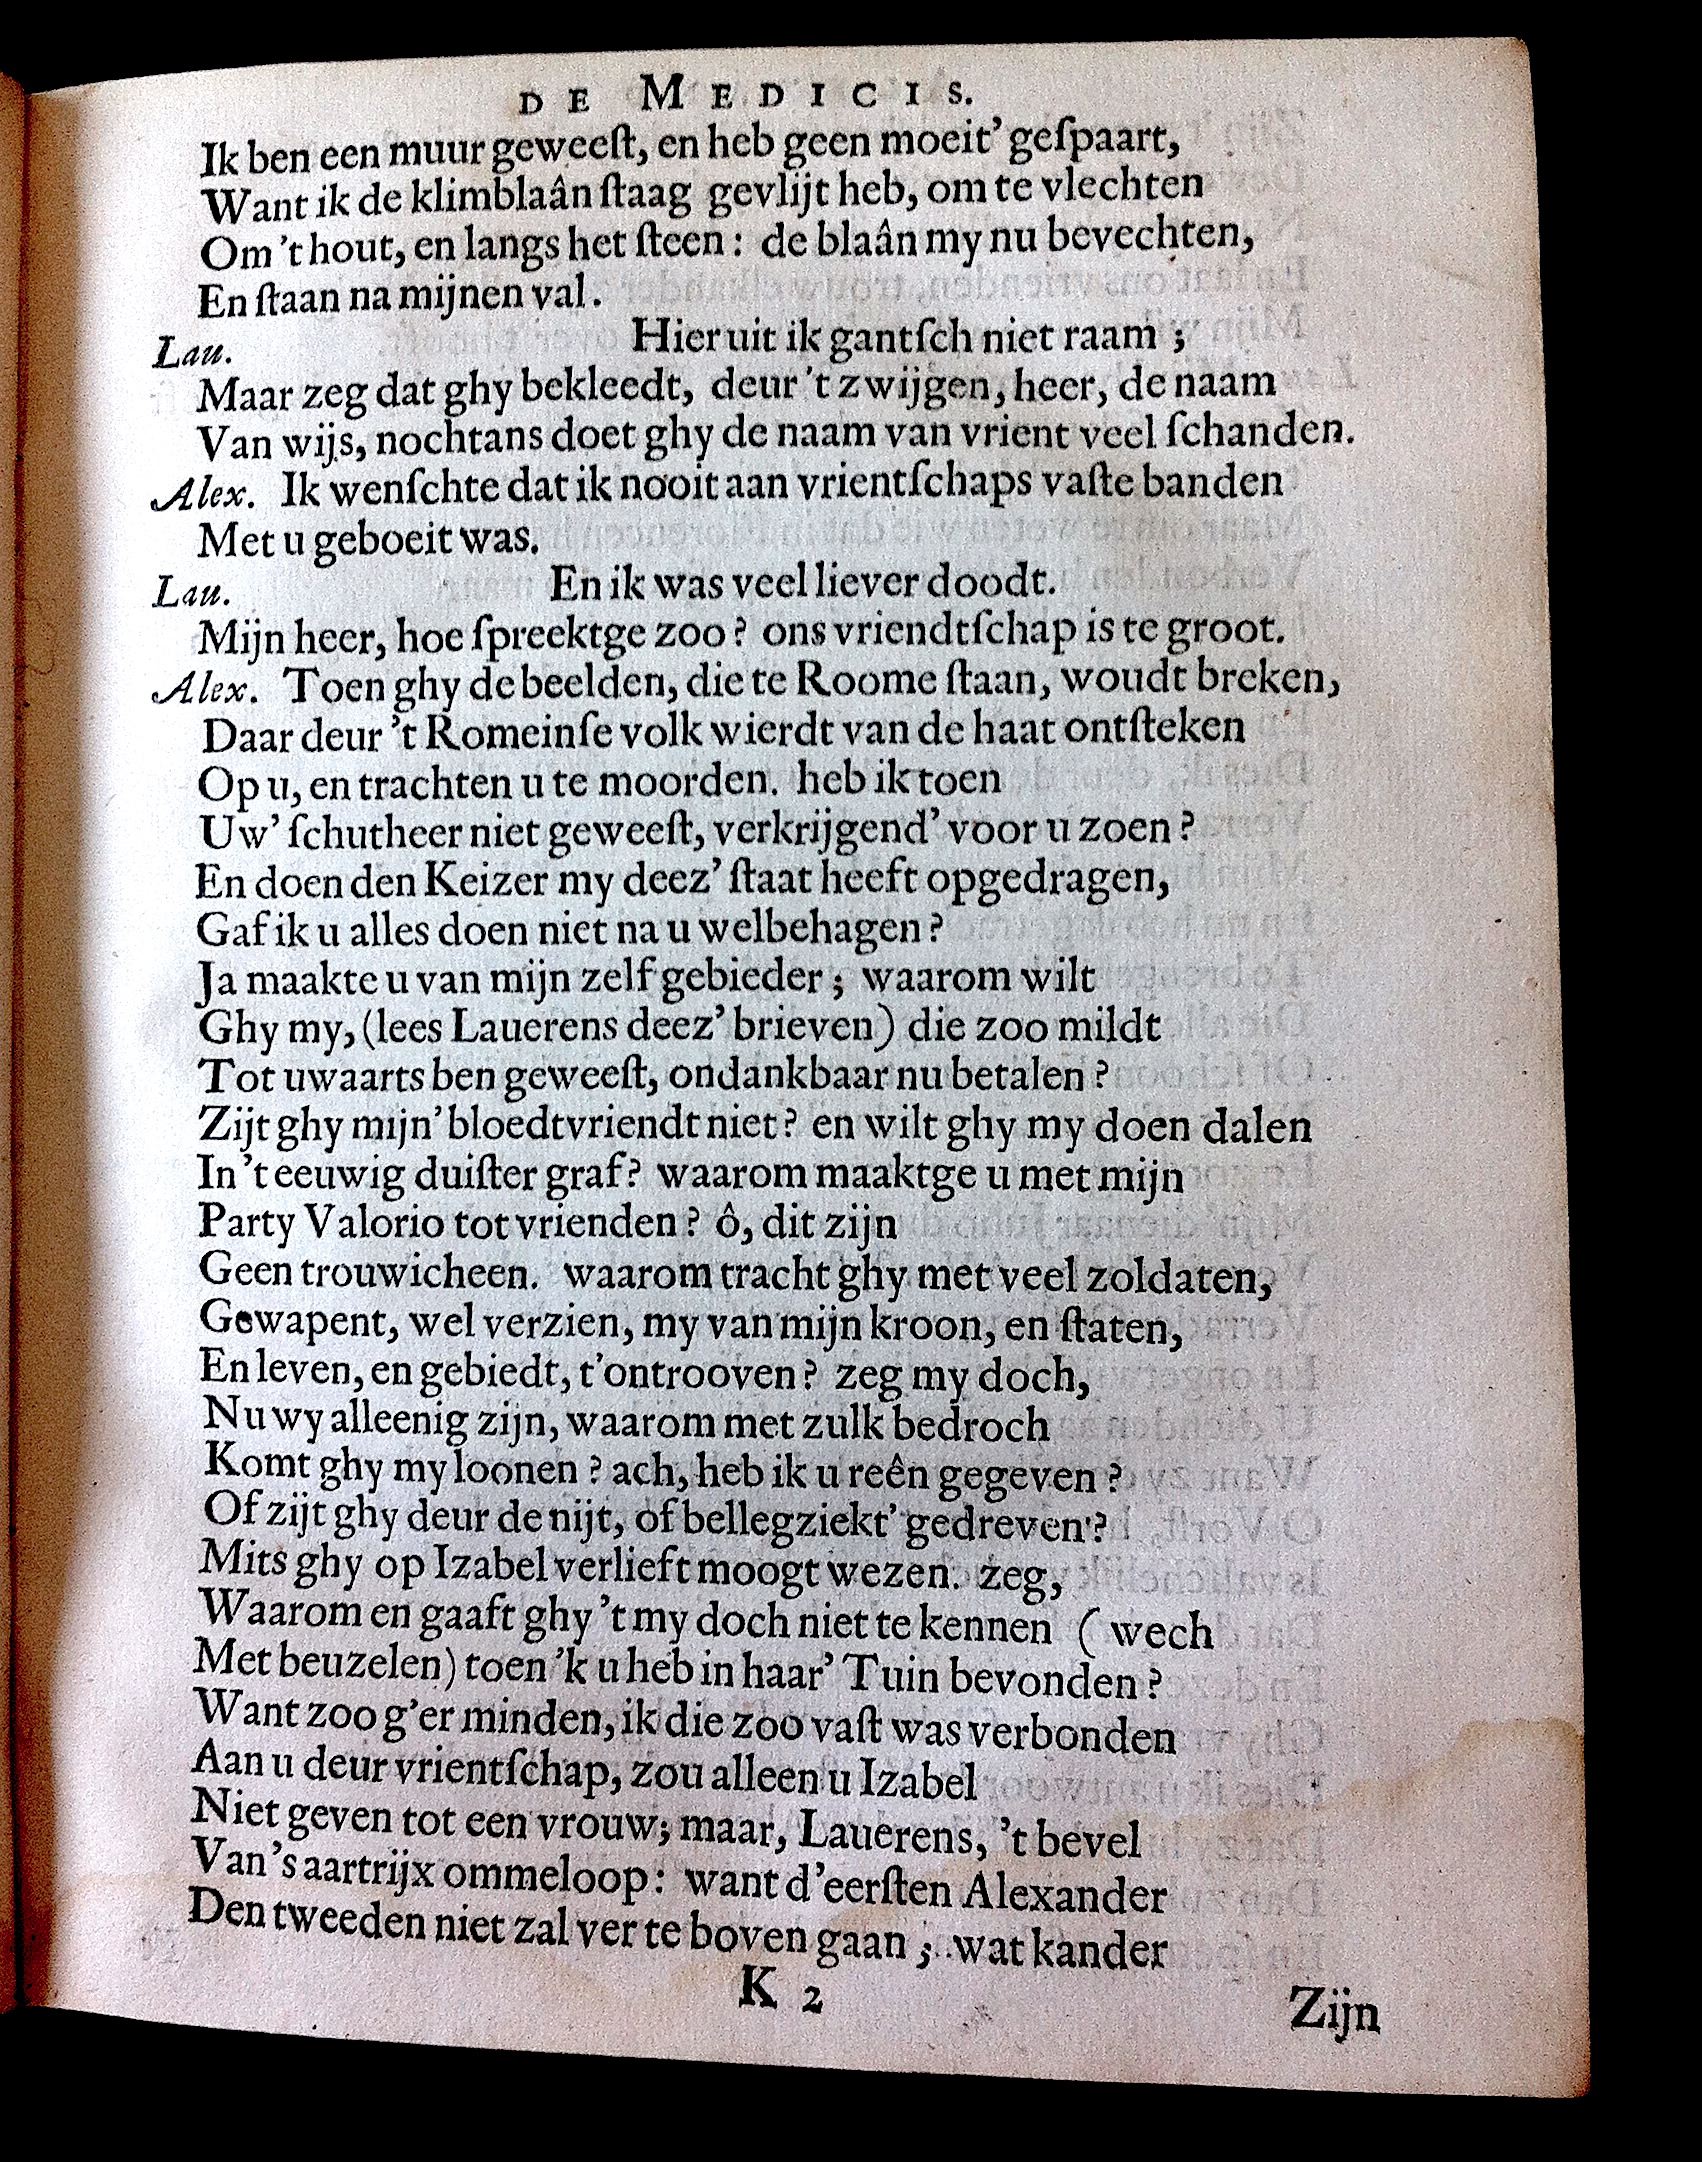 DE MEDICIS.
Ik ben een muur geweeſt, en heb geen moeit' geſpaart,
Want ik de klimblaân ſtaag gevlijt heb, om te vlechten
Om 't hout, en langs het ſteen: de blaân my nu bevechten,
En ſtaan na mijnen val.
Lau. Hier uit ik gantſch niet raam;
Maar zeg dat ghy bekleedt, deur 't zwijgen, heer, de naam
Van wijs, nochtans doet ghy de naam van vrient veel ſchanden.
Alex. Ik wenſchte dat ik nooit aan vrientſchaps vaſte banden
Met u geboeit was.
Lau. En ik was veel liever doodt.
Mijn heer, hoe ſpreektge zoo? ons vriendtſchap is te groot.
Alex. Toen ghy de beelden, die te Roome ſtaan, woudt breken,
Daar deur 't Romeinſe volk wierdt van de haat ontſteken
Op u, en trachten u te moorden. heb ik toen
Uw' ſchutheer niet geweeſt, verkrijgend' voor u zoen?
En doen den Keizer my deez' ſtaat heeft opgedragen,
Gaf ik u alles doen niet na u welbehagen?
Ja maakte u van mijn zelf gebieder; waarom wilt
Ghy my, (lees Lauerens deez' brieven) die zoo mildt
Tot uwaarts ben geweeſt, ondankbaar nu betalen?
Zijt ghy mijn' bloedtvriendt niet? en wilt ghy my doen dalen
In 't eeuwig duiſter graf? waarom maaktge u met mijn
Party Valorio tot vrienden? ô, dit zijn
Geen trouwicheen. waarom tracht ghy met veel zoldaten,
Gewapent, wel verzien, my van mijn kroon, en ſtaten,
En leven, en gebiedt, t'ontrooven? zeg my doch,
Nu wy alleenig zijn, waarom met zulk bedroch
Komt ghy my loonen? ach, heb ik u reên gegeven?
Of zijt ghy deur de nijt, of bellegziekt' gedreven?
Mits ghy op Izabel verlieft moogt wezen. zeg,
Waarom en gaaft ghy 't my doch niet te kennen (wech
Met beuzelen) toen 'k u heb in haar' Tuin bevonden?
Want zoo g'er minden, ik die zoo vaſt was verbonden
Aan u deur vrientſchap, zou alleen u Izabel
Niet geven tot een vrouw; maar, Lauerens, 't bevel
Van 's aartrijx ommeloop: want d'eerſten Alexander
Den tweeden niet zal ver te boven gaan; wat kander
K 2
Zijn